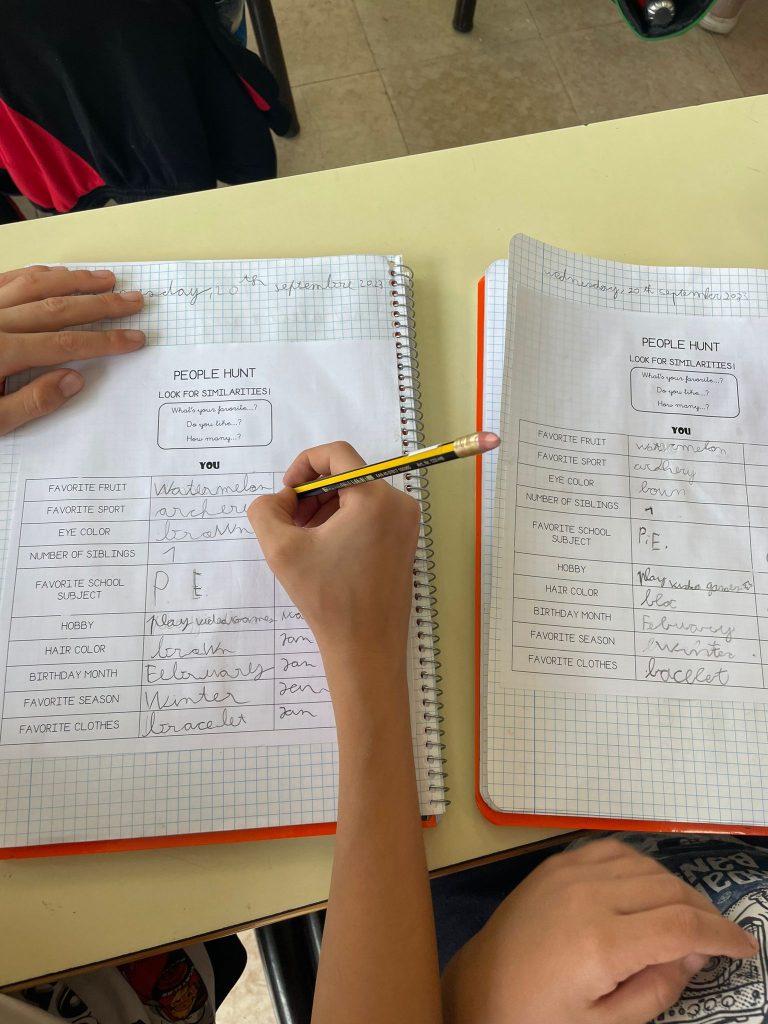 20th septembre 2023
PEOPLE HUNT
LOOK FOR SIMILARITIES!
What's your favorite...?
Do you like...?
How many...?
YOU
FAVORITE FRUIT watermelon
FAVORITE SPORT
EYE COLOR brown
NUMBER OF SIBLINGS 1
FAVORITE SCHOOL SUBJECT P. E.
HOBBY play
HAIR COLOR brown
BIRTHDAY MONTH February
FAVORITE SEASON Winter
FAVORITE CLOTHES bracelet
wednesday, 20th september 2023
PEOPLE HUNT
LOOK FOR SIMILARITIES!
What's your favorite...?
Do you like...?
How many...?
YOU
FAVORITE FRUIT watermelon
FAVORITE SPORT ardhery
EYE COLOR bown
NUMBER OF SIBLINGS 1
FAVORITE SCHOOL SUBJECT P.E.
HOBBY play video games
HAIR COLOR
BIRTHDAY MONTH February
FAVORITE SEASON winter
FAVORITE CLOTHES